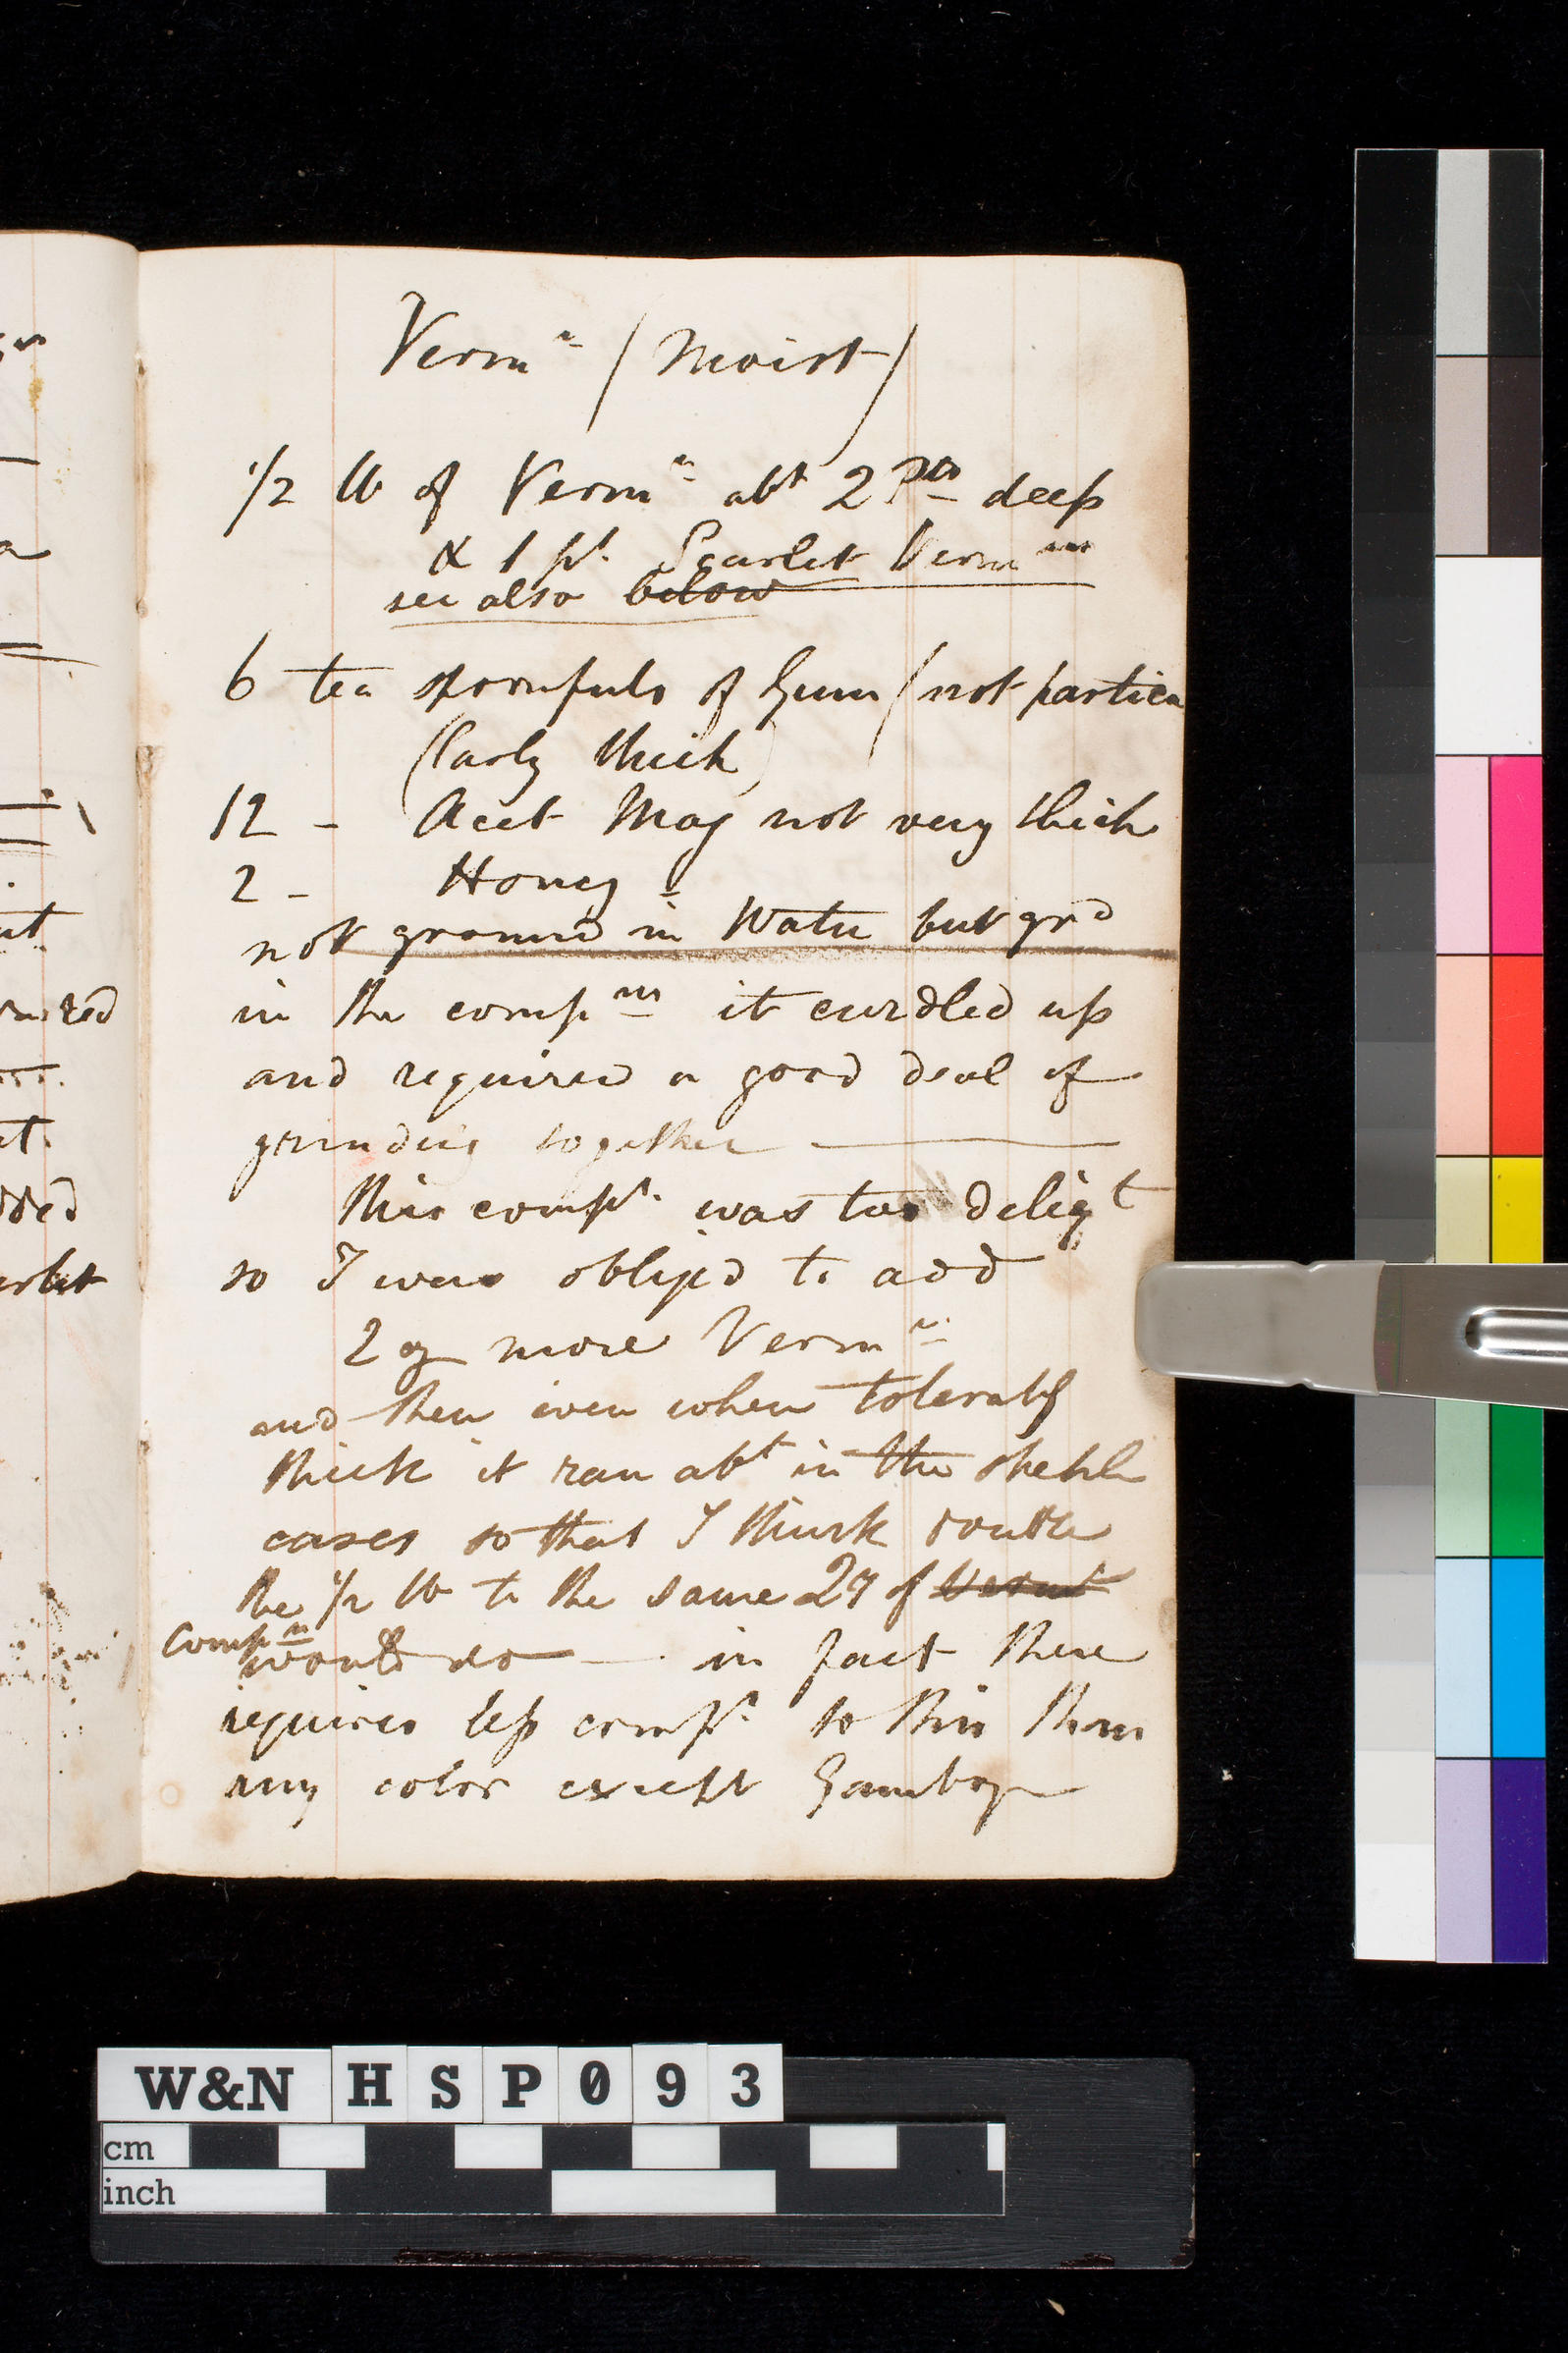 Verm<sup>n</sup> (Moist)
1/2 lb of Verm<sup>n</sup> ab<sup>t</sup> 2 P<sup>ts</sup> deep
& 1 pt. Scarlet Verm<sup>n</sup>
see also below
6 tea spoonfuls of Gum (not particu
(larly thick)
12 - Acet Mag not very thick
2 - Honey
not ground in Water but gr<sup>d</sup>
in the comp<sup>n</sup> it curdled up
and required a good deal of
grinding together
this comp<sup>n</sup>. was too deliq<sup>t</sup>
so I was oblig'd to add
2 oz more Verm<sup>n</sup>
and then even when tolerably
thick it ran ab<sup>t</sup> in the sketch
cases so that I think double
the 1/2 lb to the same 2y of
Comp<sup>n</sup>
would do — in fact there
requires less comp<sup>n</sup>. to this than
any color except Gamboge
ut
red
arlet
W&N HSP093
cm
inch